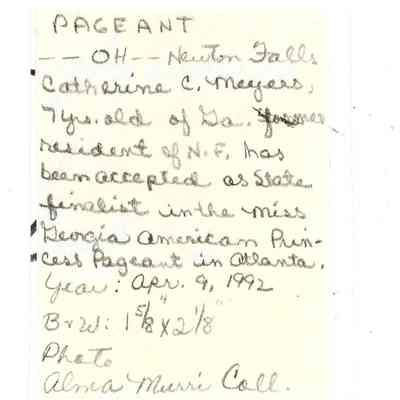 PAGEANT
-- OH -- Newton Falls
Catherine C. Meyers,
7 yrs. old of Ga. former
resident of N.F. has
been accepted as State
finalist in the Miss
Georgia American Prin-
cess Pageant in Atlanta.
Year: Apr. 9, 1992
B+W: 1 5/8" x 2 1/8"
Photo
Alma Murri Coll.